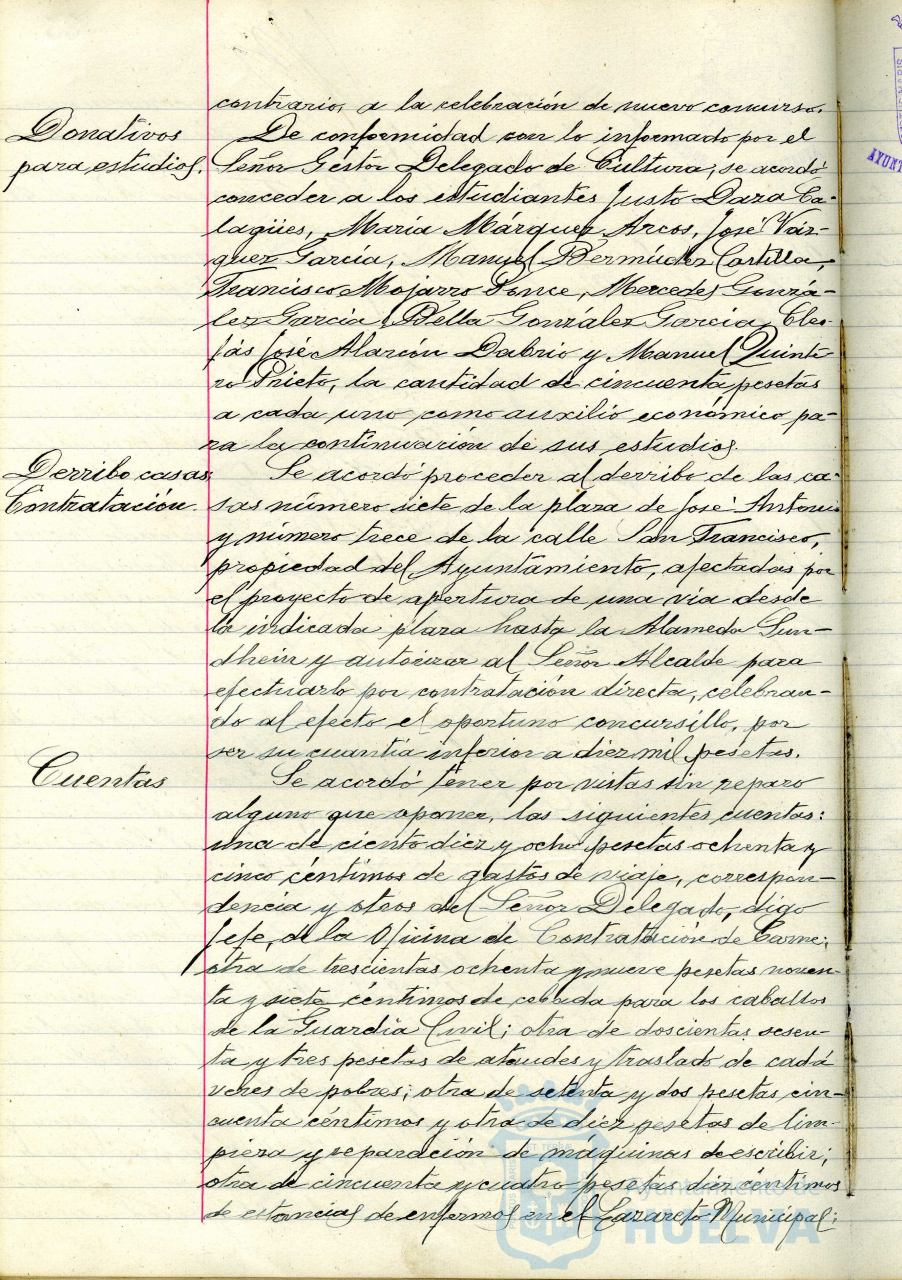 contrario, a la celebración de nuevo concurso.
Donativos
para estudios.
De conformidad con lo informado por el
Señor Gestor Delegado de Cultura, se acordó
conceder a los estudiantes Justo Daza Ca-
lagües, María Márquez Arcos, José Váz-
quez García, Manuel Bermúdez Castilla,
Francisco Mojarro Ponce, Mercedes Gonzá-
lez García, Bella González García, Cleo-
fás José Alarcón Dabrio y Manuel Quinte-
ro Prieto, la cantidad de cincuenta pesetas
a cada uno como auxilio económico pa-
ra la continuación de sus estudios.
Derribo casas
Contratación.
Se acordó proceder al derribo de las ca-
sas número siete de la plaza de José Antonio
y número trece de la calle San Francisco,
propiedad del Ayuntamiento, afectadas por
el proyecto de apertura de una vía desde
la indicada plaza hasta la Alameda Sun-
dhein y autorizar al Señor Alcalde para
efectuarlo por contratación directa, celebran-
do al efecto el oportuno concursillo, por
ser su cuantía inferior a diez mil pesetas.
Cuentas
Se acordó tener por vistas sin reparo
alguno que oponer, las siguientes cuentas:
una de ciento diez y ocho pesetas ochenta y
cinco céntimos de gastos de viaje, correspon-
dencia y otros del Señor Delegado, digo
Jefe, de la Oficina de Contratación de Carne;
otra de trescientas ochenta y nueve pesetas noven-
ta y siete céntimos de cebada para los caballos
de la Guardia Civil; otra de doscientas sesen-
ta y tres pesetas de ataudes y traslado de cadá
veres de pobres; otra de setenta y dos pesetas cin-
cuenta céntimos y otra de diez pesetas de lim-
pieza y reparación de máquinas de escribir;
otra de cincuenta y cuatro pesetas diez céntimos
de estancias de enfermos en el Lazareto Municipal;
Ayuntamiento de
HUELVA